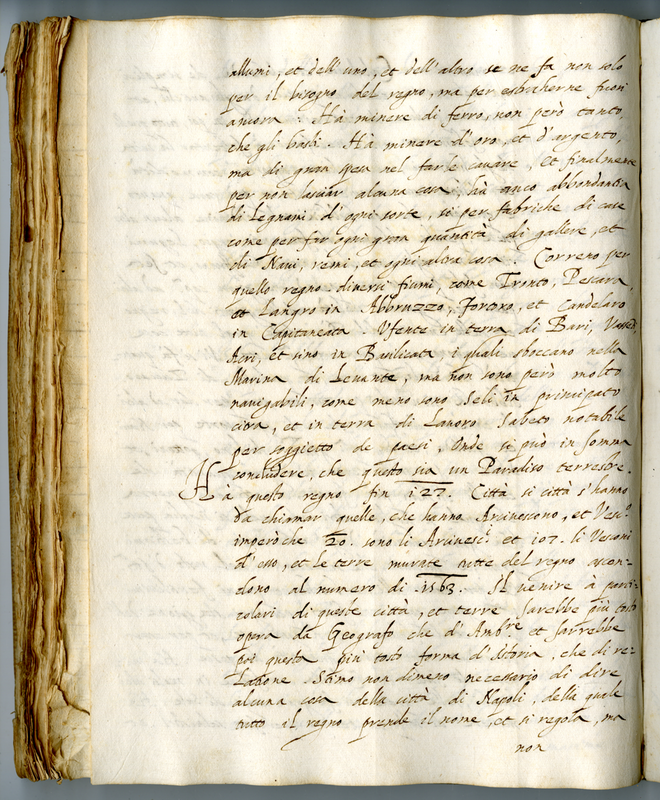 allumi, et dell'uno, et dell'altro se ne fa non solo
per il bisogno del regno, ma per estraherne fuori
ancora. Hà minere di ferro, non però tanto,
che gli basti. Hà minere d'oro, et d'argento,
ma di gran spesa nel farle cavare, et finalmente
per non lasciar alcuna cosa, hà anco abbondantia
di Legnami d'ogni sorte, si per fabriche di case
come per far ogni gran quantità di gallere, et
di Navi, remi, et ogni altra cosa. Correno per
quello regno diversi fiumi, come Tronto, Pescara,
et Langro in Abbruzzo, Fortoro, et Candelaro
in Capitaneata Vfente in terra di Bari,
Acri, et sino in Basilicata, i quali sboccano nella
Marina di Levante, ma non sono però molto
navigabili, come meno sono Seli in principato
citra, et in terra di Lavoro Sabeto notabile
per soggietto de paesi, Onde si può in somma
concludere, che questo sia un Paradiso terrestre.
Ha questo regno fin 127. Città si città s'hanno
da chiamar quelle, che hanno Arcivescono, et Vesc.o
imperòche 20. sono li Arcivesc.i et 107. li Vesconi
d'esso, et le terre murate tutte del regno ascen-
dono al numero di 1563. Il venire à parti-
colari di queste città, et terre sarebbe più tosto
opera da Geografo che d'Amb.re et sarrebbe
poi questa più tosto forma d'Istoria, che di re=
Latione. Stimo non dimeno necessario di dire
alcuna cosa della città di Napoli, della quale
tutto il regno prende il nome, et si regola, ma
non